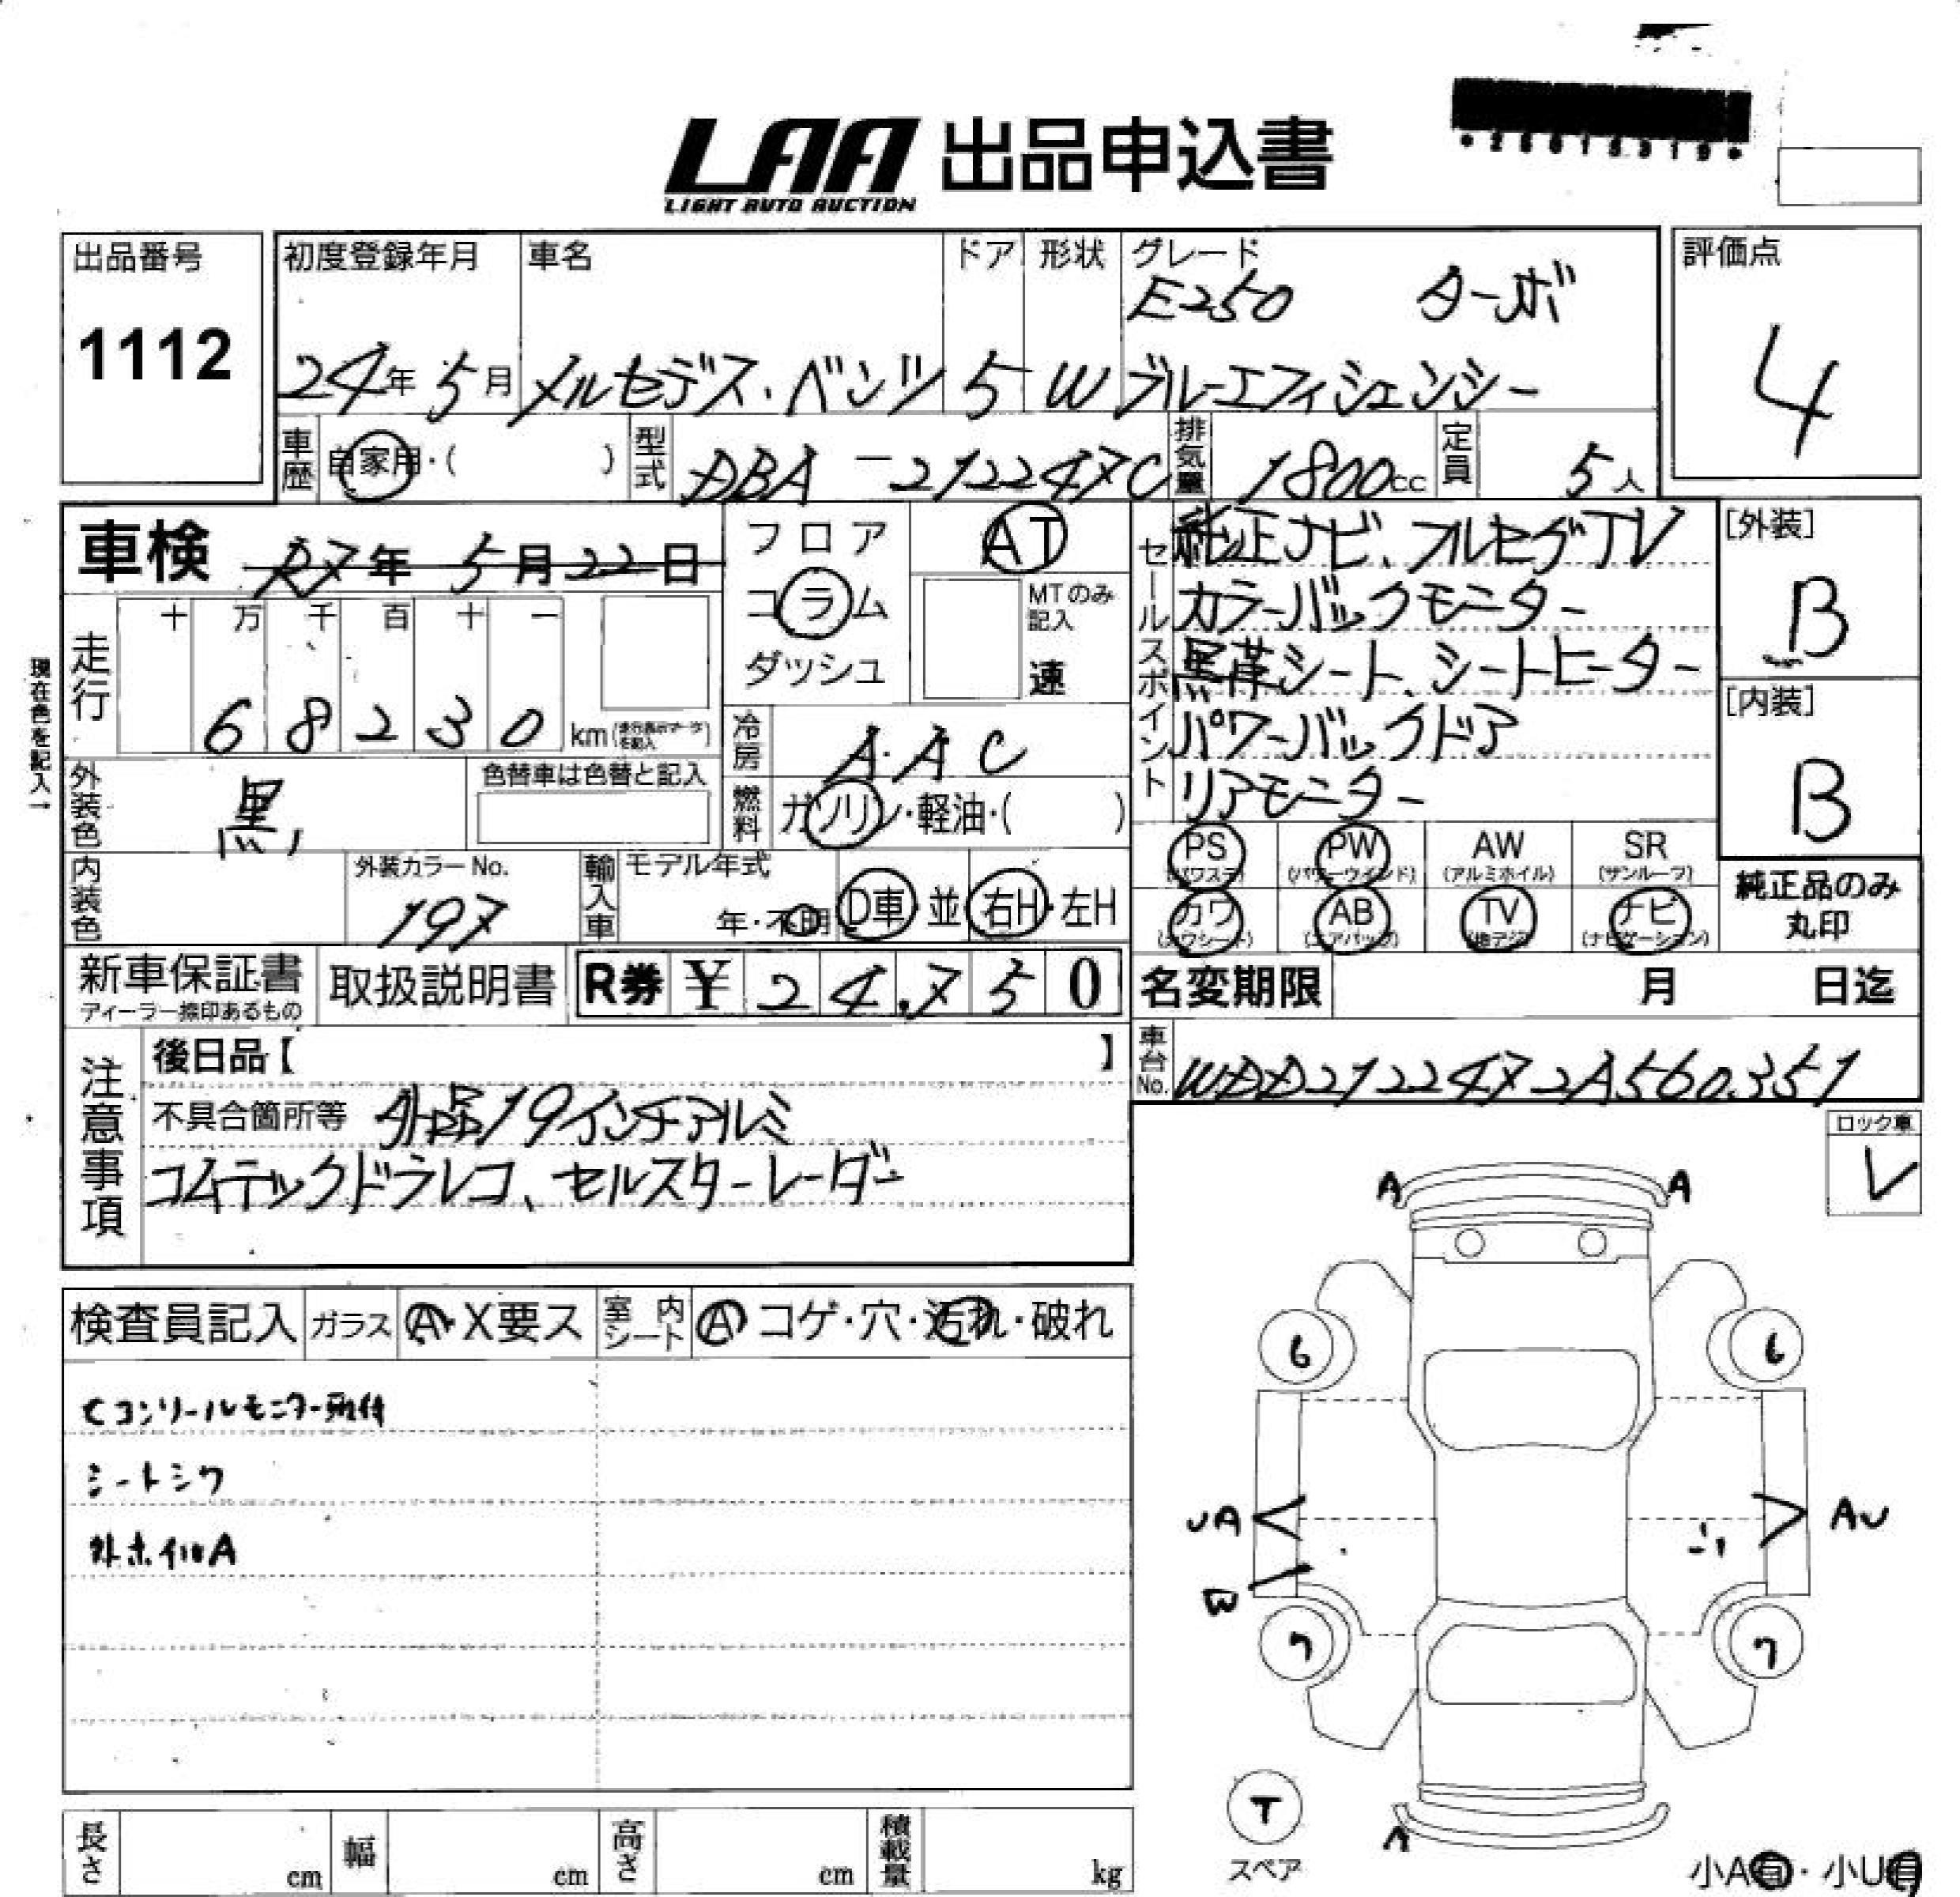 LAA 出品申込書
LIGHT AUTO AUCTION
出品番号
1112
初度登録年月 車名 ドア 形状 グレード
E250 ターボ
24年 5月 メルセデス・ベンツ 5 W ブルーエフィシェンシー
評価点
4
車歴 自家用・( ) 型式 DBA-212247C 排気量 1800cc 定員 5人
車検 R7年 5月 22日
フロア
コラム
ダッシュ
AT
MTのみ記入
速
セールスポイント
純正ナビ、フルセグTV
カラーバックモニター
黒革シート、シートヒーター
パワーバックドア
リアモニター
[外装]
B
[内装]
B
現在色を記入→
走行 十 万 千 百 十 一
6 8 2 3 0 km
冷房 A.A C
外装色 黒 色替車は色替と記入
燃料 ガソリン・軽油・( )
内装色 外装カラーNo. 197
輸入車 モデル年式 年・不明 D車・並 右H・左H
PS (パワステ) PW (パワーウインド) AW (アルミホイル) SR (サンルーフ)
カワ (カワシート) AB (エアバック) TV (地デジ) ナビ (ナビゲーション)
純正品のみ
丸印
新車保証書 取扱説明書 R券 ¥ 24,750
ディーラー捺印あるもの
名変期限 月 日迄
車台No. WDD2122472A560351
注意事項
後日品【 】
不具合箇所等 外品19インチアルミ
コムテックドラレコ、セルスターレーダー
ロック車
レ
検査員記入 ガラス A・X要ス 室内シート A コゲ・穴・汚れ・破れ
シートシワ
外ホイルA
A A
6 6
UA AU
W
7 7
T
スペア
A
小A有・小U有
長さ cm 幅 cm 高さ cm 積載量 kg